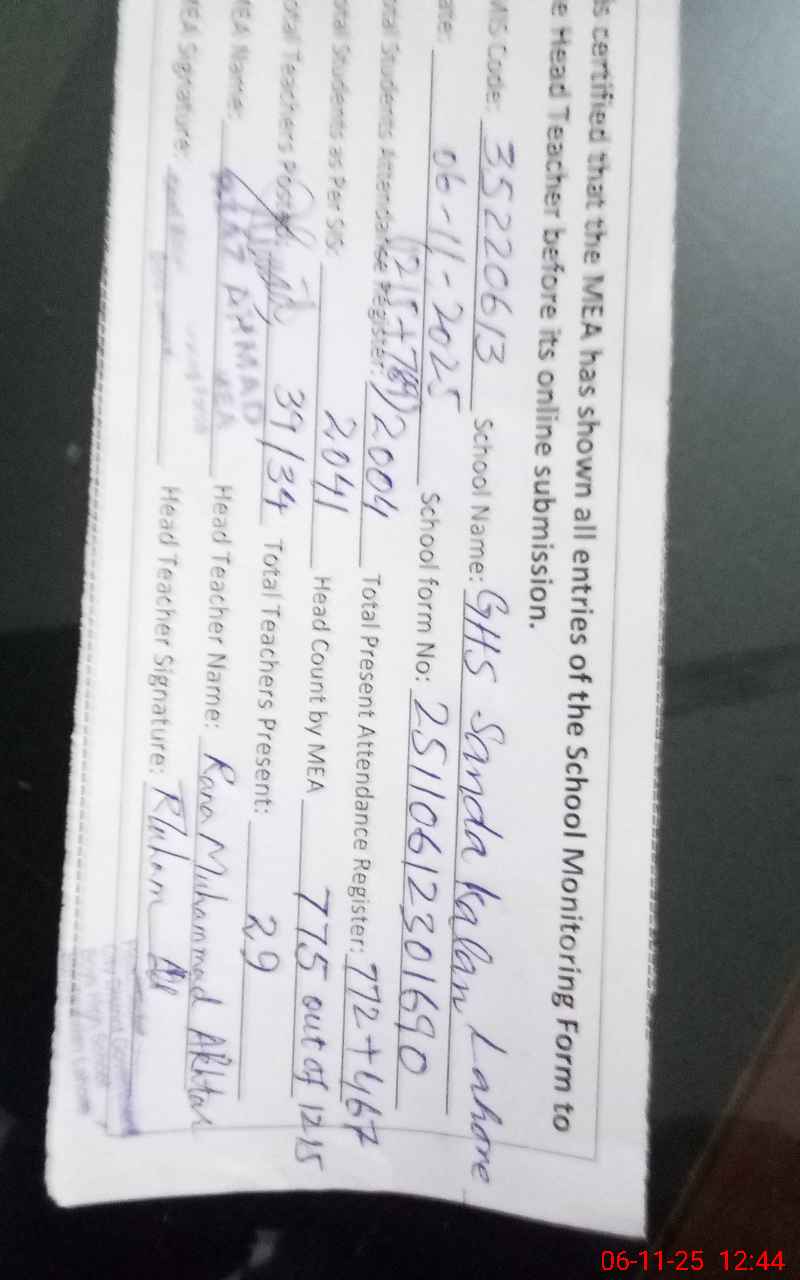 is certified that the MEA has shown all entries of the School Monitoring Form to
e Head Teacher before its online submission.
MIS Code: 35220613 School Name: GHS Sanda Kalan Lahore
ate: 06-11-2025 School form No: 25110612301690
(1215+789)
otal Students Attendance Register: 2004 Total Present Attendance Register: 772+467
otal Students as Per SIS: 2041 Head Count by MEA 775 out of 1215
otal Teachers Posted: 39/34 Total Teachers Present: 29
MEA Name: AHMAD Head Teacher Name: Rana Muhammad Akhtar
MEA
MEA Signature: Head Teacher Signature:
06-11-25 12:44